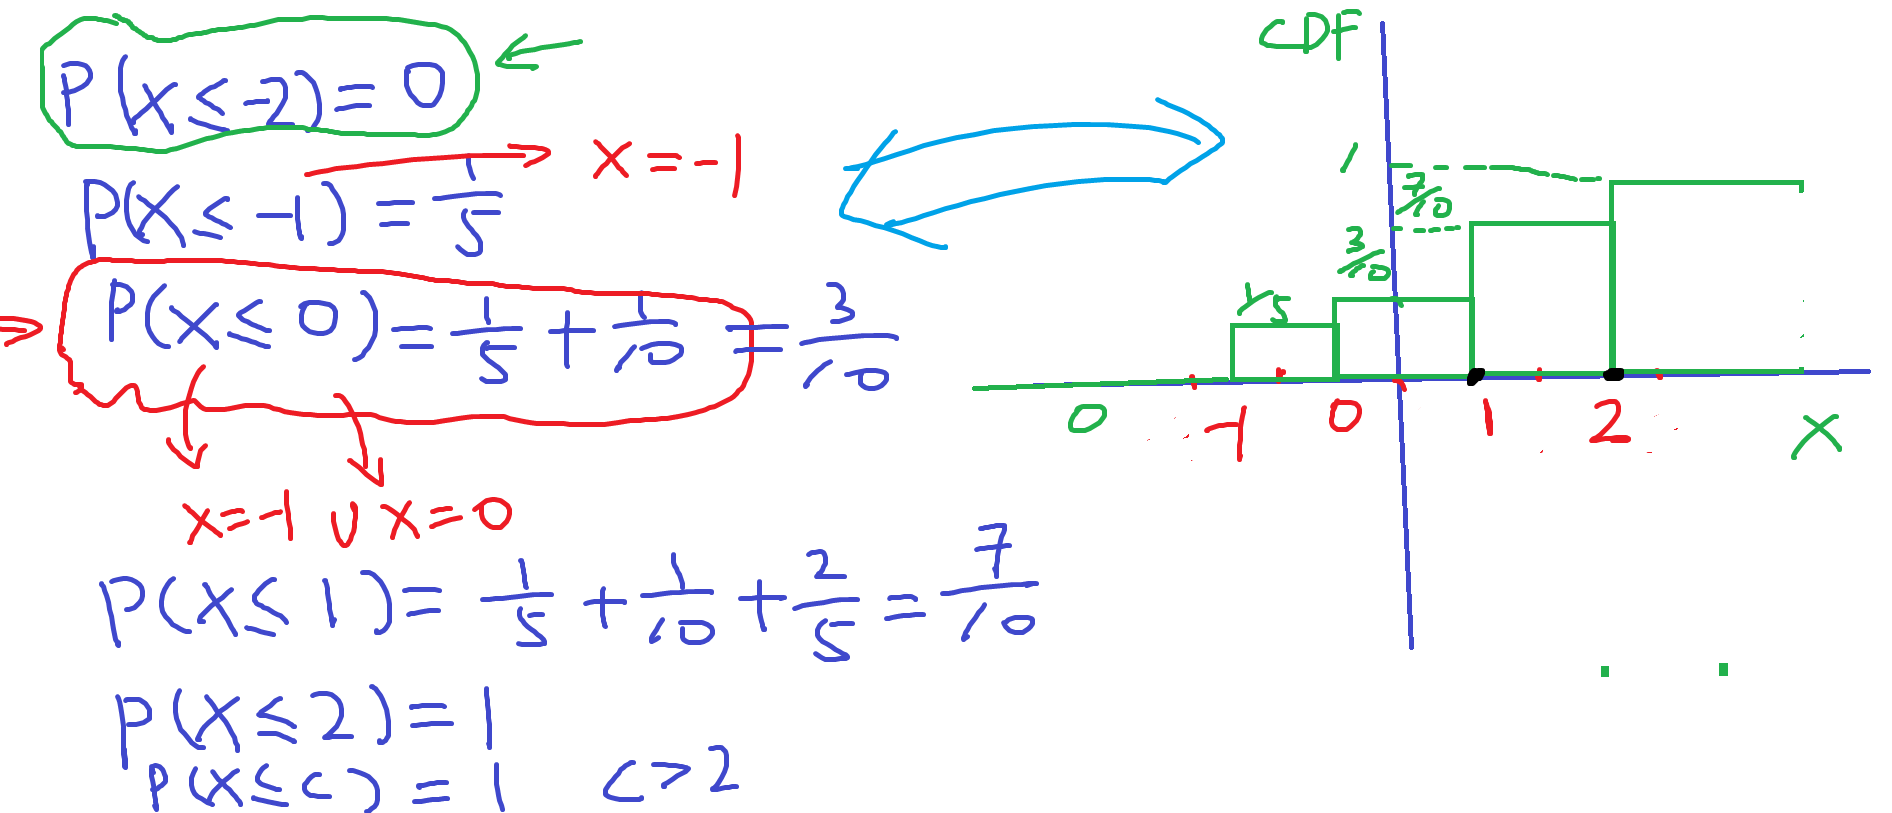 P(X ≤ -2) = 0
x = -1
P(X ≤ -1) = 1/5
P(X ≤ 0) = 1/5 + 1/10 = 3/10
x = -1 ∪ x = 0
P(X ≤ 1) = 1/5 + 1/10 + 2/5 = 7/10
P(X ≤ 2) = 1
P(X ≤ c) = 1 c > 2
CDF
1
7/10
3/10
1/5
0 -1 0 1 2 x